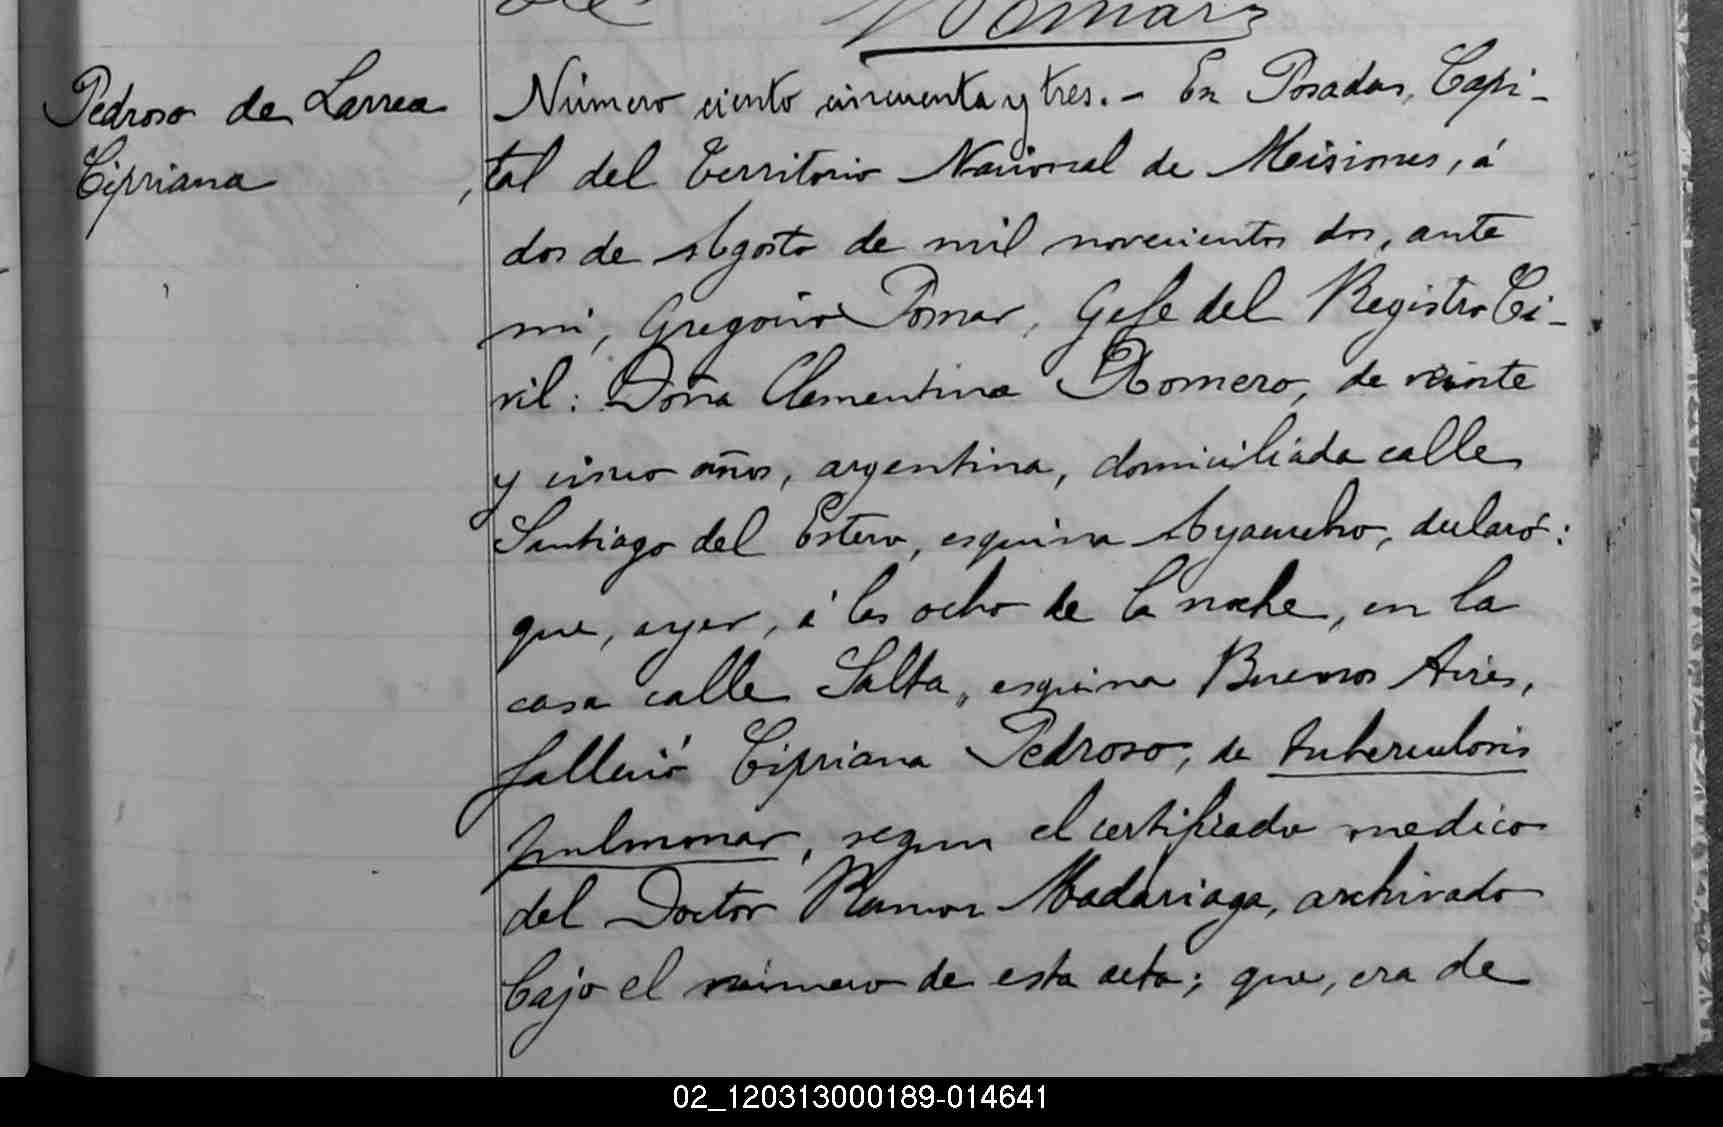 Pomar
Pedroso de Larrea
Cipriana
Número ciento cincuenta y tres. - En Posadas, Capi-
tal del Territorio Nacional de Misiones, á
dos de Agosto de mil novecientos dos, ante
mi, Gregorio Pomar, Gefe del Registro Ci-
vil: Doña Clementina Romero, de veinte
y cinco años, argentina, domiciliada calle
Santiago del Estero, esquina Ayacucho, declaró:
que, ayer, á las ocho de la noche, en la
casa calle Salta, esquina Buenos Aires,
falleció Cipriana Pedroso, de tuberculosis
pulmonar, segun el certificado medico
del Doctor Ramon Madariaga, archivado
bajo el número de esta acta; que, era de
02_120313000189-014641